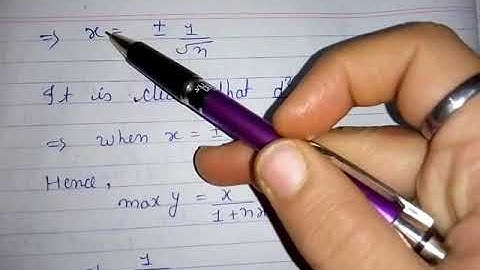 ⇒ x = ± 1/√n
It is clear that d²
⇒ when x = ±
Hence,
max y = x/(1+nx
1